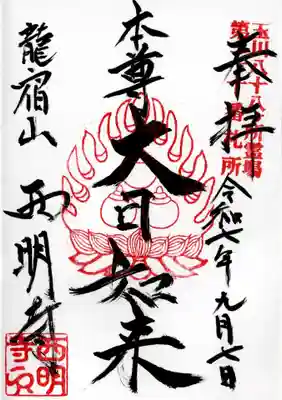 奉拝
令和七年九月七日
本尊 大日如来
龍宿山 西明寺
玉川八十八所霊場
番札所
西明寺印